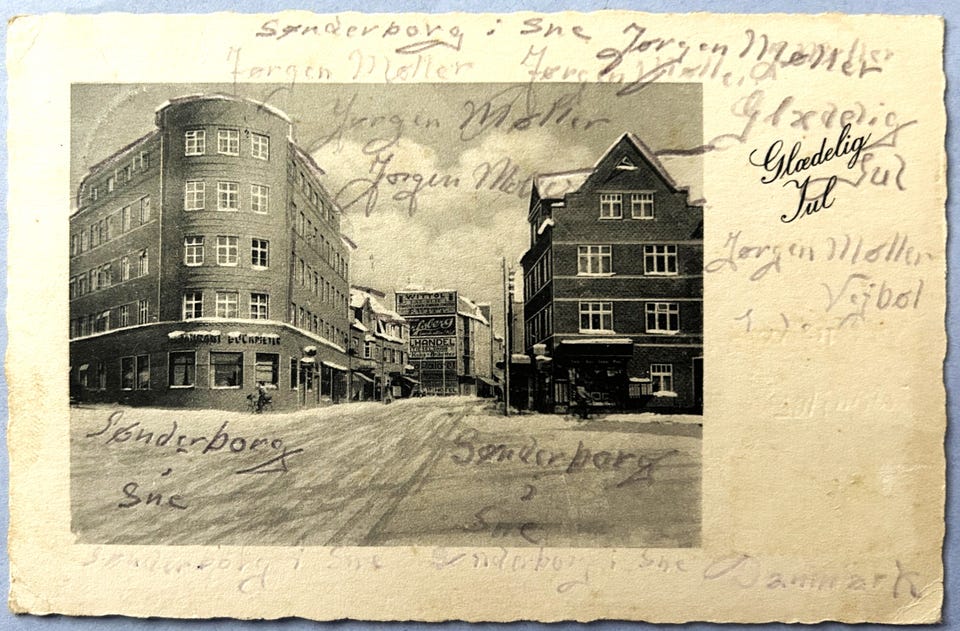 Sønderborg i Sne Jørgen Møller
Jørgen Møller Jørgen Møller
Jørgen Møller
Jørgen Møller
Glædelig
Jul
Glædelig
Jul
Jørgen Møller
Vejbøl
HANDEL
Sønderborg
i
Sne
Sønderborg
i
Sne
Sønderborg i Sne Sønderborg i Sne Danmark